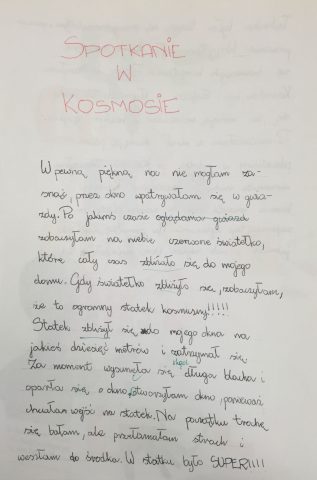 SPOTKANIE
W
KOSMOSIE
W pewną piękną noc nie mogłam za-
snąć, przez okno wpatrywałam się w gwia-
zdy. Po jakimś czasie oglądania gwiazd
zobaczyłam na niebie czerwone światełko,
które cały czas zbliżało się do mojego
domu. Gdy światełko zbliżyło się, zobaczyłam,
że to ogromny statek kosmiczny!!!!!
Statek zbliżył się do mojego okna na
jakieś dziesięć metrów i zatrzymał się.
Za moment wysunęła się długa blacha i
oparła się o okno, otworzyłam okno, ponieważ
chciałam wejść na statek. Na początku trochę
się bałam, ale przełamałam strach i
weszłam do środka. W statku było SUPER!!!!